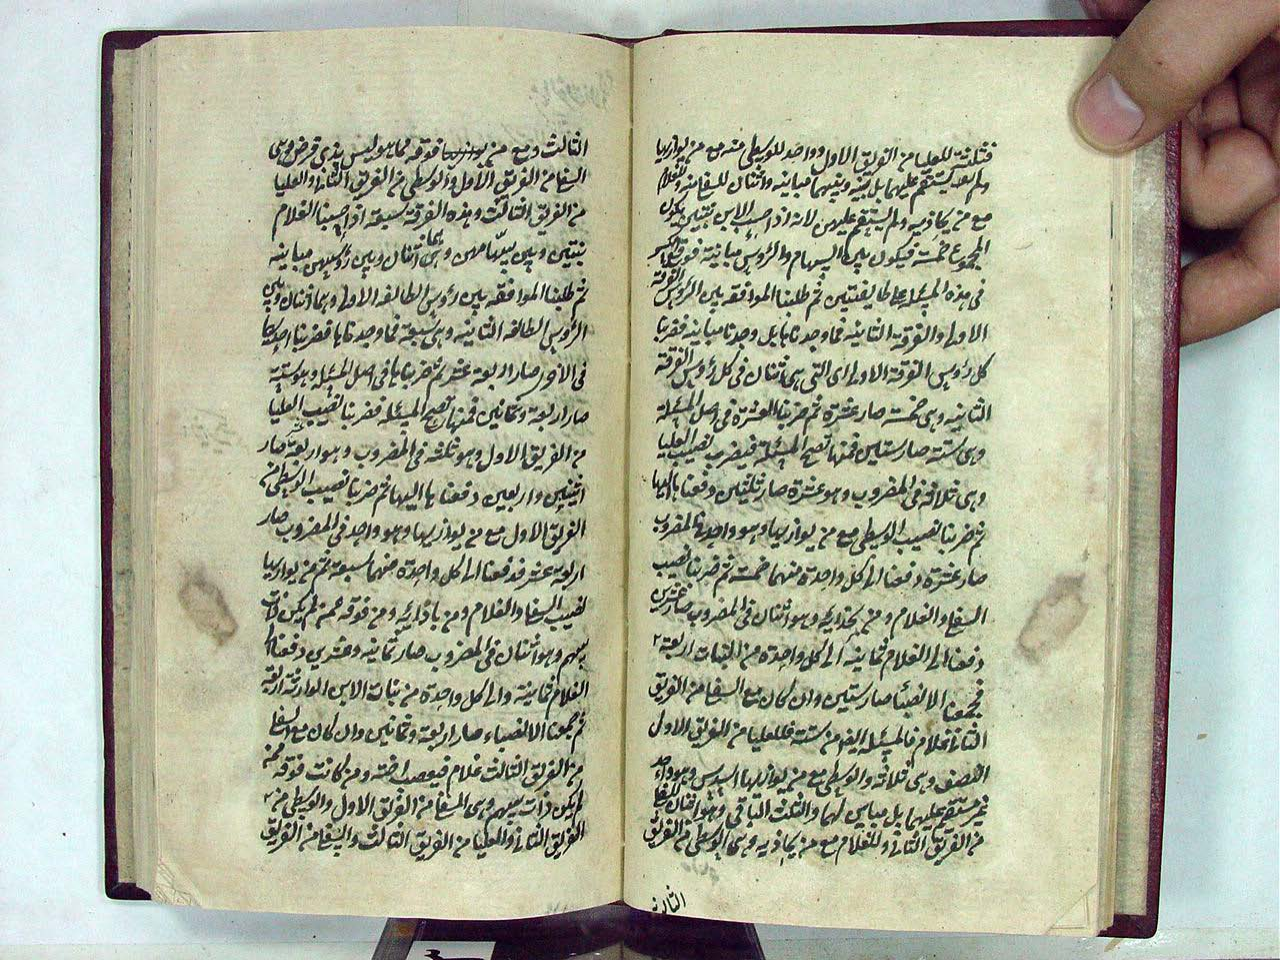 فثلثة للعليا من الفريق الاول وواحد للوسطى منه مع من يوازيها
ولم يعد يستقيم عليهما بل بينه وبينهما مباينه واثنان للسفلى منه وللغلام
مع من يحاذيه ولم يستقم عليهن لانه اذا حسب الابن بنتين يكون
المجموع خمسة فيكون بين السهام والرؤس مباينة فوقع الكسر
في هذه المسئلة على طايفتين ثم طلبنا الموافقه بين الرؤس الفرقة
الاولى والفرقة الثانيه فما وجدناها بل وجدنا مباينه فضربنا
كل رؤس الفرقة الاولى اى التى هى اثنان في كل رؤس الفرقة
الثانيه وهى خمسة صار عشرة ثم ضربنا العشرة في اصل المسئلة
وهى ستة صار ستين فمنها تصح المسئلة فيضرب نصيب العليا
وهى ثلاثة في المضروب وهو عشرة صار ثلثين دفعناها اليها
ثم ضربنا نصيب الوسطى مع من يوازيها وهو واحد في المضروب
صار عشرة دفعنا الى كل واحدة منهما خمسة ثم ضربنا نصيب
السفلى والغلام ومن بحذايه وهو اثنان في المضروب صار عشرين
دفعنا الى الغلام ثمانيه الى كل واحدة من البنات اربعة
فجمعنا الانصباء صار ستين وان كان مع السفلى من الفريق
الثانى غلام فالمسئلة ايضا من ستة فللعليا من الفريق الاول
النصف وهى ثلاثة والوسطى مع من يوازيها السدس وهو واحد
غير مستقيم عليهما بل مباين لهما والثلث الباقى وهو اثنان للسفلى
من الفريق الثانى وللغلام مع من يحاذيه وهى الوسطى من الفريق
الثالث
الثالث ومع من فوقه مما هو ليس بذى فرض وهى
السفلى من الفريق الاول والوسطى من الفريق الثانى والعليا
من الفريق الثالث وهذه الفرقة سبعة اذا حسبنا الغلام
بنتين وبين سهامهن وهى اثنان وبين رؤسهن مباينه
ثم طلبنا الموافقه بين رؤس الطائفه الاولى وهما اثنان وبين
الرؤس الطائفه الثانيه وهى سبعة فما وجدناها فضربنا احديهما
في الاخر صار اربعة عشر ثم ضربناها في اصل المسئلة وهو ستة
صار اربعة وثمانين فمنها تصح المسئلة فضربنا نصيب العليا
من الفريق الاول وهو ثلثه في المضروب وهو اربعة عشر صار
اثنين واربعين دفعناها اليها ثم ضربنا نصيب الوسطى من
الفريق الاول مع من يوازيها وهو واحد في المضروب صار
اربعة عشر فدفعنا الى كل واحدة منهما سبعة ثم من يوازيها
نصيب السفلى والغلام ومن باذائه ومن فوقه ممن لم يكن ذات
سهم وهو اثنان في المضروب صار ثمانيه وعشرين دفعنا الى
الغلام ثمانية والى كل واحدة من بنات الابن الوارثة اربعة
ثم جمعنا الانصباء صار اربعة وثمانين وان كان مع السفلى
من الفريق الثالث غلام فيعصب اخته ومن كانت فوقه ممن
لم يكن ذات سهم وهى السفلى من الفريق الاول والوسطى من
الفريق الثانى والعليا من الفريق الثالث والسفلى من الفريق